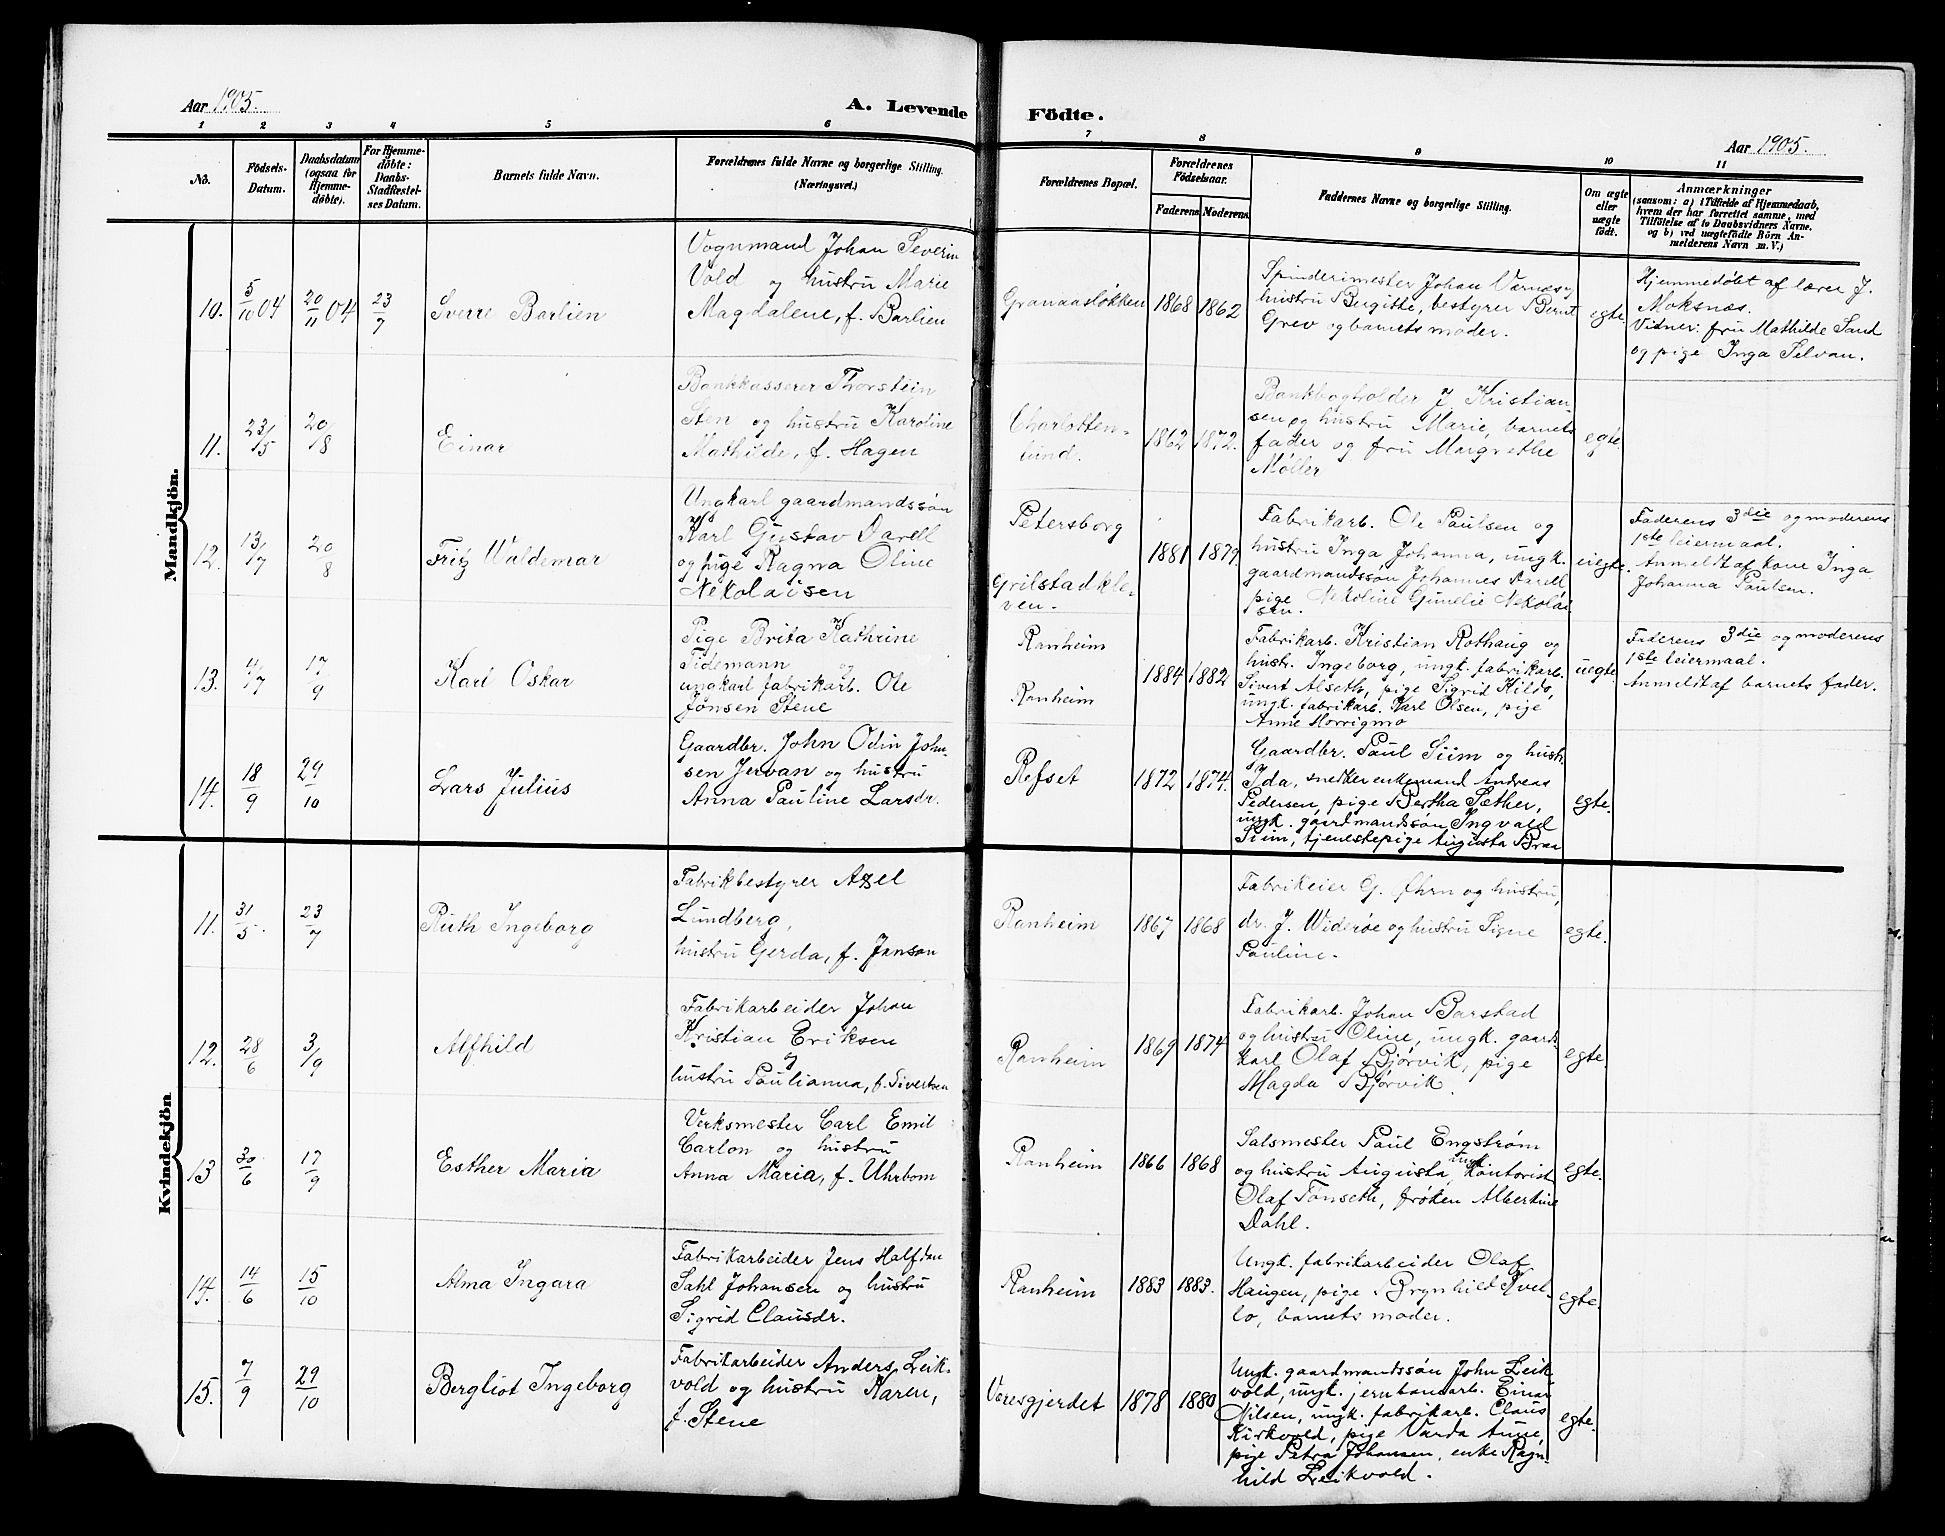 Aar 1905.
A. Levende Födte.
Aar 1905.
1 2 3 4 5 6 7 8 9 10 11
No.
Födsels-Datum.
Daabsdatum (ogsaa for Hjemmedøbte).
For Hjemmedöbte: Daabs-Stadfæstelses Datum.
Barnets fulde Navn.
Forældrenes fulde Navne og borgerlige Stilling. (Næringsvei.)
Forældrenes Bopæl.
Forældrenes Födselsaar.
Faderens. Moderens.
Faddernes Navne og borgerlige Stilling.
Om ægte eller uægte födt.
Anmærkninger
(saasom: a) i Tilfælde af Hjemmedaab,
hvem der har forrettet samme, med
Tilföielse af to Daabsvidners Navne,
og b) ved uægtefödte Börn An-
melderens Navn m. V.)
Mandkjön.
10. 5/10 04 20/11 04 23/7 Sverre Barlien
Vognmand Johan Severin
Vold og hustru Marie
Magdalene, f. Barlien
Granaasløkken 1868 1862
Spinderimester Johan Værnes,
hustru Birgitte, bestyrer Bernt
Grev og barnets moder.
egte.
Hjemmedøbt af lærer J.
Moksnæs.
Vidner: fru Mathilde Sand
og pige Inga Selvan.
11. 23/5 20/8 Einar
Bankkasserer Thorstein
Sten og hustru Karoline
Mathilde, f. Hagen
Charlotten-
lund. 1862 1872.
Bankbogholder J. Kristian-
sen og hustru Marie, barnets
fader og fru Margrethe
Møller
egte.
12. 13/7 20/8 Fritz Waldemar
Ungkarl gaardmandssøn
Karl Gustav Darell
og pige Ragna Oline
Nekolaisen
Petersborg
Grilstadkle-
ven. 1881 1879.
Fabrikarb. Ole Paulsen og
hustru Inga Johanna, ungk.
gaardmandssøn Johannes Darell
pige Nekoline Gunelie Nekolai
sen.
uegte.
Faderens 3die og moderens
1ste leiermaal.
Anmeldt af kone Inga
Johanna Paulsen.
13. 4/7 17/9 Karl Oskar
Pige Brita Kathrine
Tidemann og
ungkarl fabrikarb. Ole
Jonsen Stene
Ranheim
Ranheim 1884 1882
Fabrikarb. Kristian Rothaug og
hustr. Ingeborg, ungk. fabrikarb.
Sivert Alseth, pige Sigrid Kilds,
ungk. fabrikarb. Karl Olsen, pige
Anne Morrigmo
uegte.
Faderens 3die og moderens
1ste leiermaal.
Anmeldt af barnets fader.
14. 18/9 29/10 Lars Julius
Gaardbr. John Odin John-
sen Jervan og hustru
Anna Pauline Larsdr.
Refset 1872 1874.
Gaardbr. Paul Siim og hustr.
Ida, snedker enkemand Andreas
Pedersen, pige Bertha Sæther,
ungk. gaardmandssøn Ingvald
Siim, tjenestepige Augusta Braa
egte.
Kvindekjön
11. 31/5. 23/7 Ruth Ingeborg
Fabrikbestyrer Axel
Lundberg,
hustru Gerda, f. Janson
Ranheim 1867 1868
Fabrikeier G. Øhrn og hustru,
dr. J. Widerøe og hustru Signe
Pauline.
egte.
12. 28/6 3/9 Alfhild
Fabrikarbeider Johan
Kristian Eriksen
og
hustru Paulianna, f. Sivertsen
Ranheim 1869 1874
Fabrikarb. Johan Barstad
og hustru Oline, ungk. gaards-
karl Olaf Bjørvik, pige
Magda Bjørvik.
egte.
13 30/6 17/9 Esther Maria
Verksmester Carl Emil
Carlon og hustru
Anna Maria, f. Uhrbom
Ranheim 1866 1868
Salsmester Paul Engstrøm
og hustru Augusta, ungk. kontorist
Olaf Tønseth, frøken Albertine
Dahl.
egte.
14. 14/6 15/10 Alma Ingara
Fabrikarbeider Jens Halfdan
Sahl Johansen og hustru
Sigrid Clausdr.
Ranheim 1883 1883.
Ungk. fabrikarbeider Olaf
Haugen, pige Brynhild Kvel-
lo, barnets moder.
egte.
15. 7/9 29/10 Bergliot Ingeborg
Fabrikarbeider Anders Leik-
vold og hustru Karen,
f. Stene
Væresgjerdet 1878 1880
Ungk. gaardmandssøn John Leik
vold, ungk. jernbanearb. Einar
Nilsen, ungk. fabrikarb. Claus
Kirkvold, pige Varda Aune,
pige Petra Johansen, enke Ragn-
hild Leikvold.
egte.